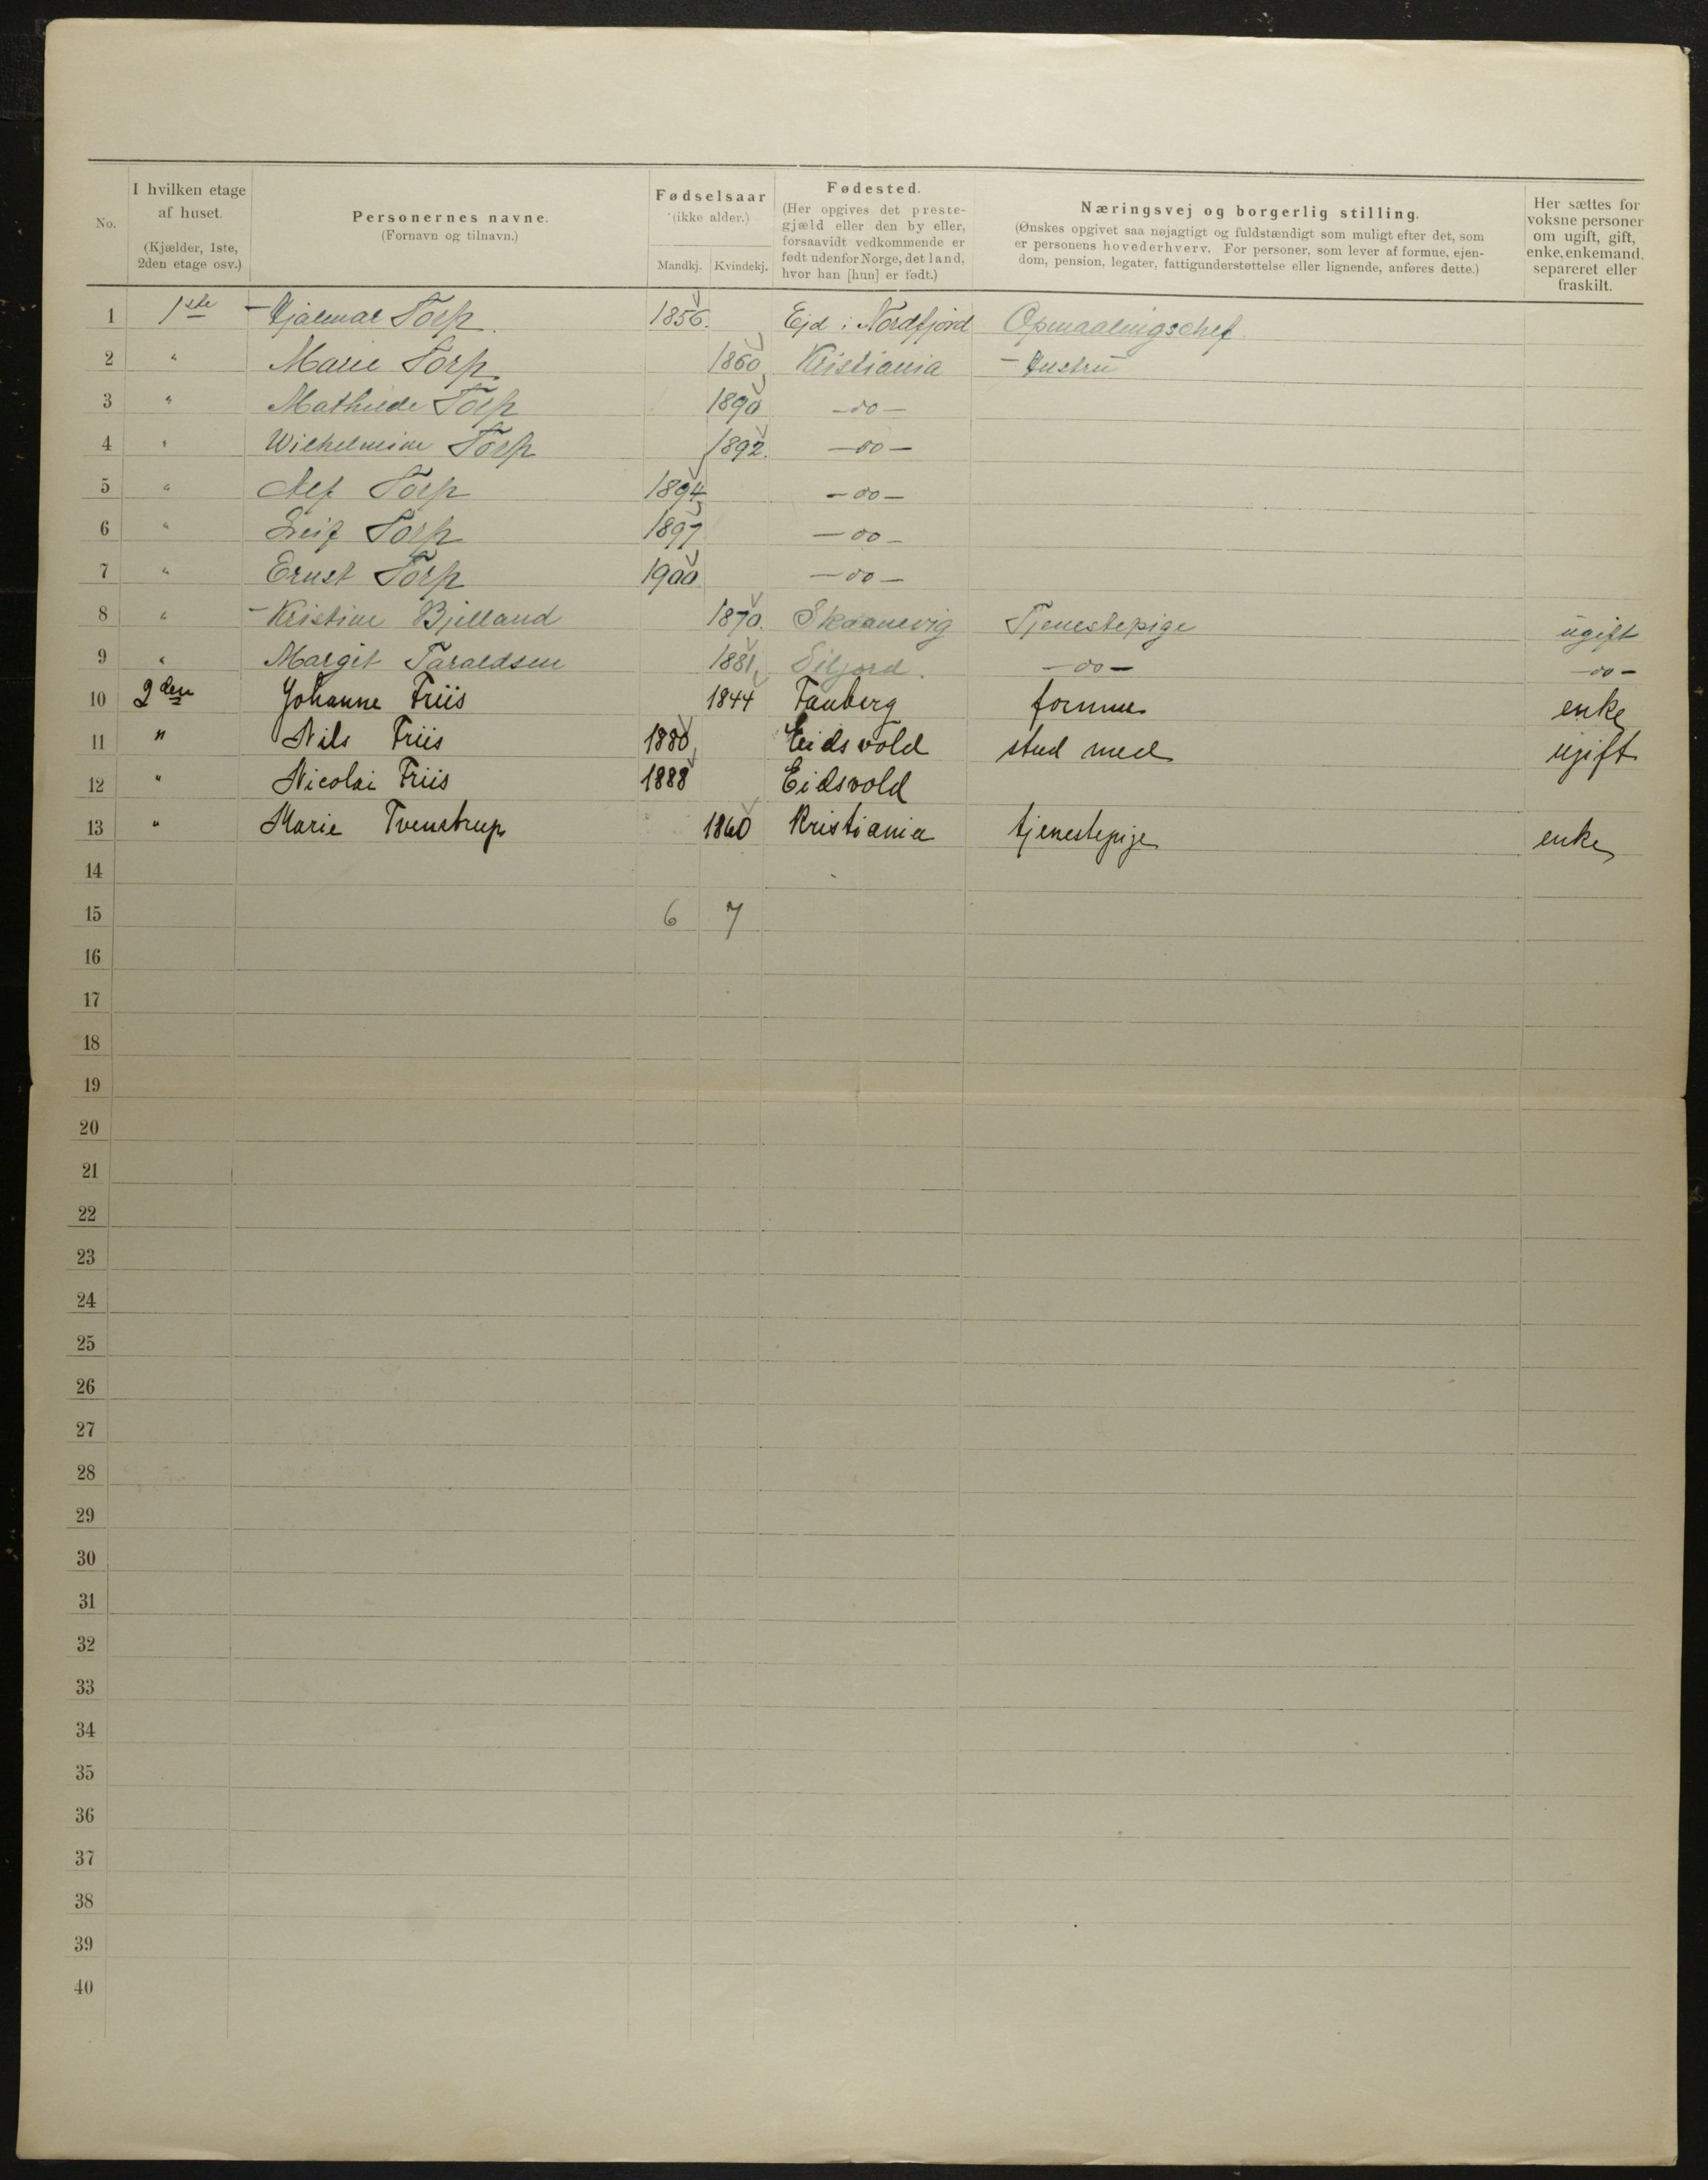 No. I hvilken etage af huset. (Kjælder, 1ste, 2den etage osv.) Personernes navne. (Fornavn og tilnavn.) Fødselsaar (ikke alder.) Mandkj. Kvindekj. Fødested. (Her opgives det prestegjæld eller den by eller, forsaavidt vedkommende er født udenfor Norge, det land, hvor han [hun] er født.) Næringsvej og borgerlig stilling. (Ønskes opgivet saa nøjagtigt og fuldstændigt som muligt efter det, som er personens hovederhverv. For personer, som lever af formue, ejendom, pension, legater, fattigunderstøttelse eller lignende, anføres dette.) Her sættes for voksne personer om ugift, gift, enke, enkemand, separeret eller fraskilt.
1 1ste Hjalmar Torp. 1856. Ejd i Nordfjord Opmaalingschef
2 " Marie Torp 1860 Kristiania Hustru
3 " Mathilde Torp 1890 —do—
4 " Wilhelmine Torp 1892. —do—
5 " Alf Torp 1894 —do—
6 " Leif Torp 1897 —do—
7 " Ernst Torp 1900 —do—
8 " Kristine Bjelland 1870. Skaanevig Tjenestepige ugift
9 " Margit Taraldsen 1881 Siljord. —do— —do—
10 2den Johanne Friis 1844 Fauberg formue enke
11 " Nils Friis 1880 Eidsvold stud med ugift
12 " Nicolai Friis 1888 Eidsvold
13 " Marie Tvenstrup 1860 Kristiania tjenestepige enke
14
15 6 7
16
17
18
19
20
21
22
23
24
25
26
27
28
29
30
31
32
33
34
35
36
37
38
39
40